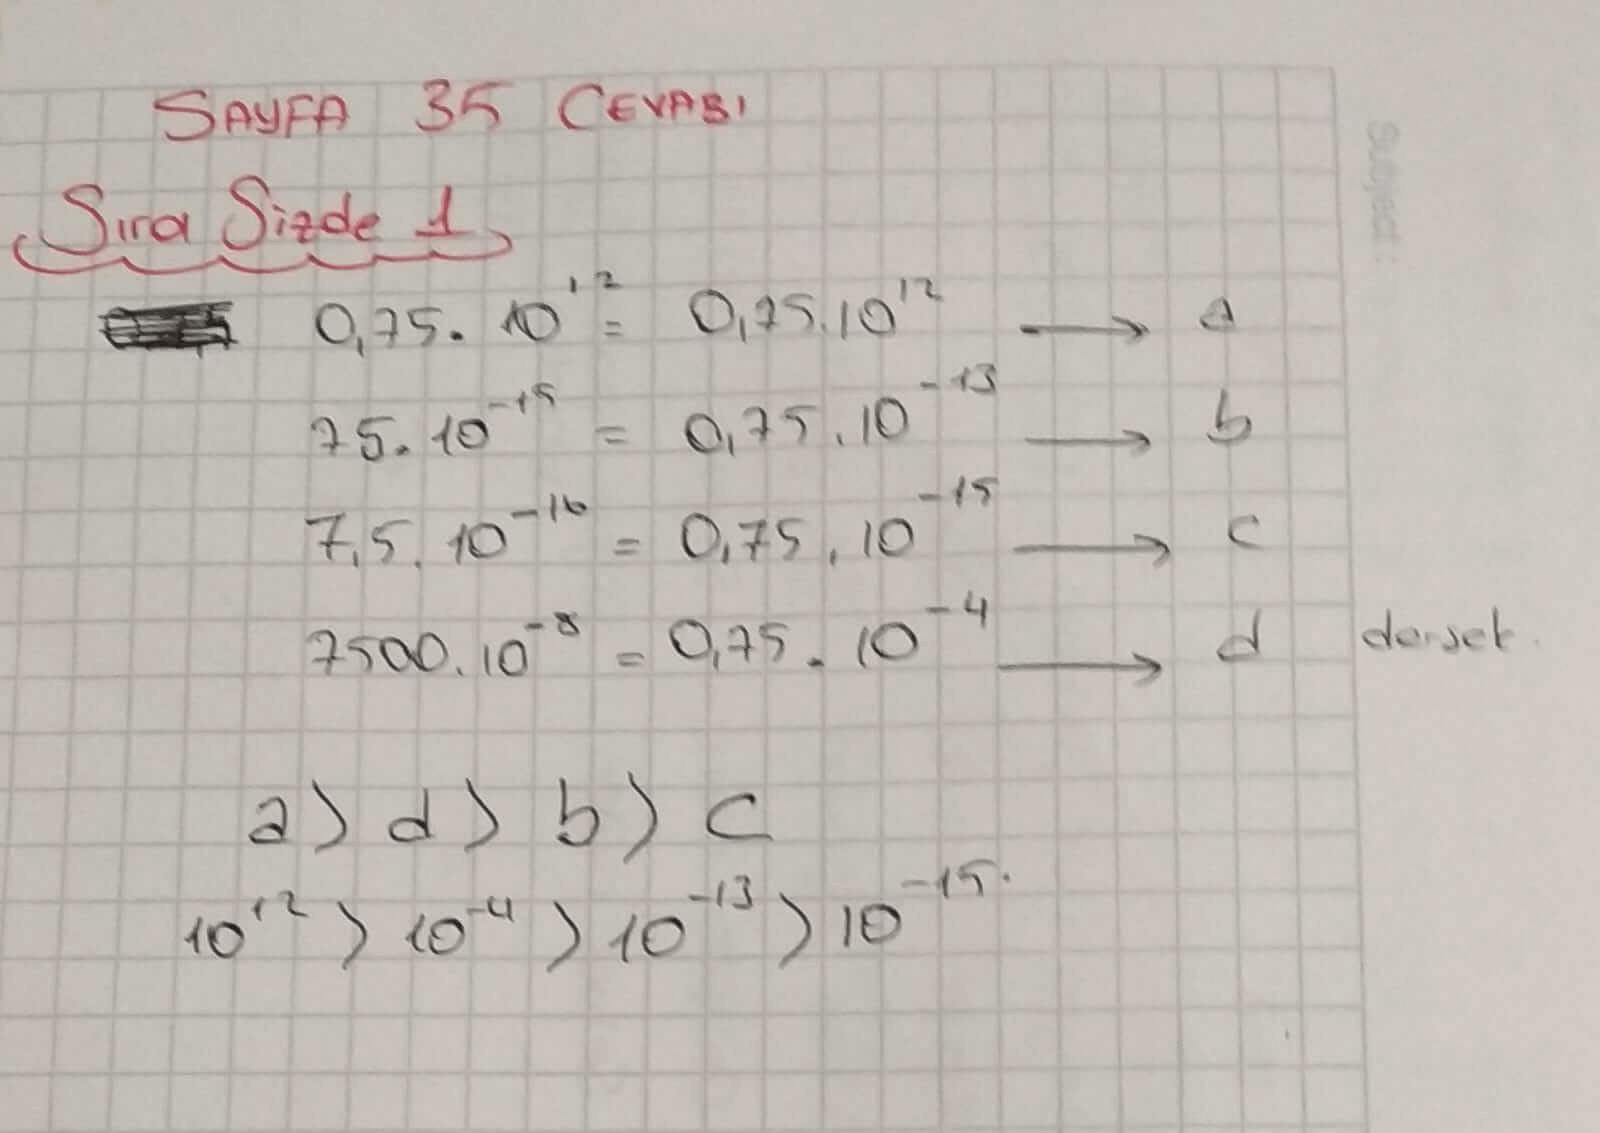 SAYFA 35 CEVABI
Sıra Sizde 1
0,75. 10¹² = 0,75.10¹² → a
75. 10⁻¹⁵ = 0,75. 10⁻¹³ → b
7,5. 10⁻¹⁶ = 0,75. 10⁻¹⁵ → c
7500. 10⁻⁸ = 0,75. 10⁻⁴ → d dersek.
a > d > b > c
10¹² > 10⁻⁴ > 10⁻¹³ > 10⁻¹⁵.
Subject :